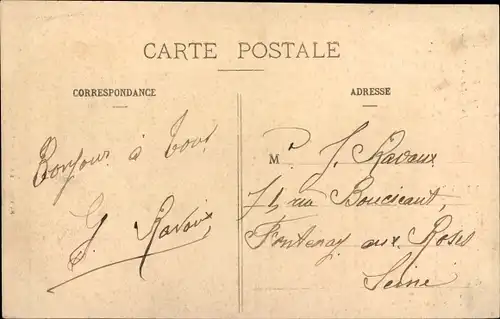 CARTE POSTALE
CORRESPONDANCE
Bonjour à tous
G. Ravaux
ADRESSE
Mr J. Ravaux
71, rue Boucicaut,
Fontenay aux Roses
Seine